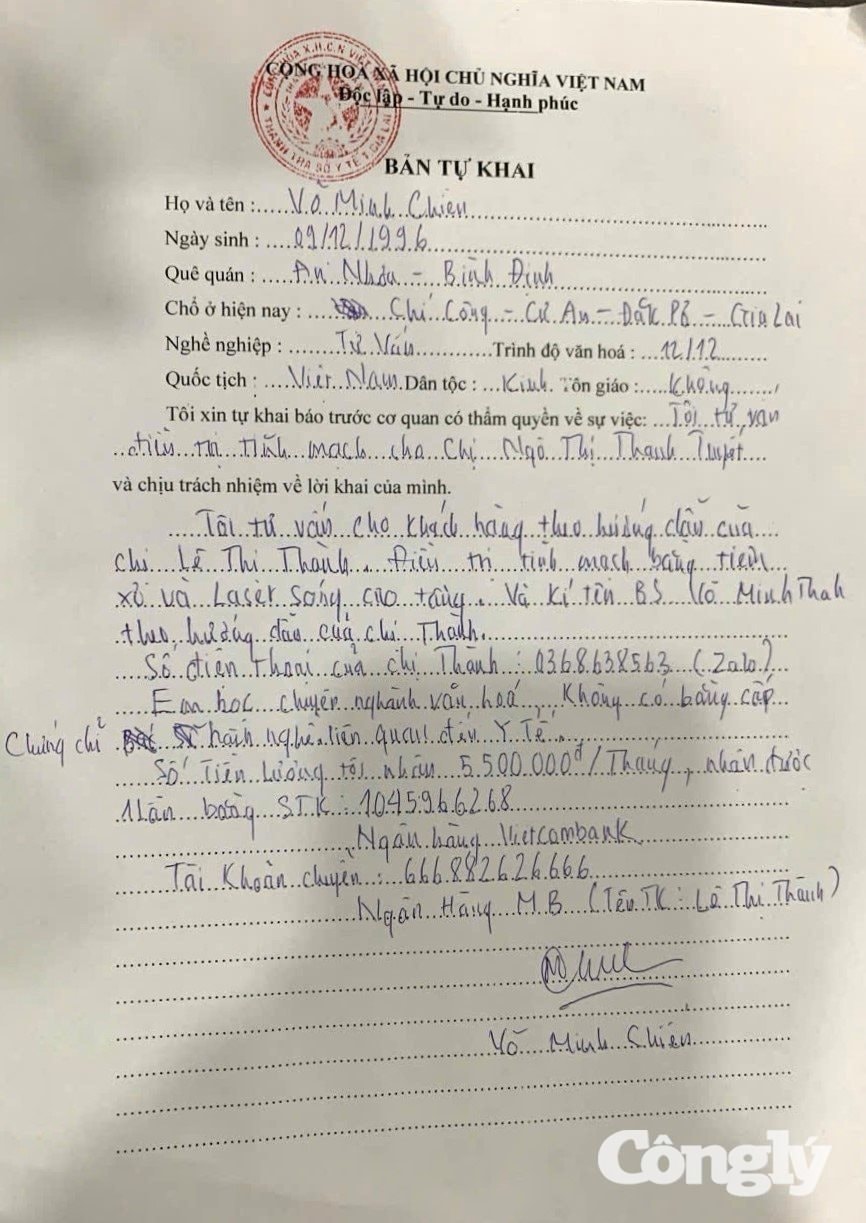 CỘNG HOÀ XÃ HỘI CHỦ NGHĨA VIỆT NAM
Độc lập - Tự do - Hạnh phúc
THANH TRA SỞ Y TẾ T. GIA LAI
BẢN TỰ KHAI
Họ và tên : Võ Minh Chiến
Ngày sinh : 09/12/1996
Quê quán : An Nhơn - Bình Định
Chổ ở hiện nay : Chí Công - Cư An - Đăk Pơ - Gia Lai
Nghề nghiệp : Tư Vấn Trình độ văn hoá : 12/12
Quốc tịch : Việt Nam Dân tộc : Kinh Tôn giáo : Không
Tôi xin tự khai báo trước cơ quan có thẩm quyền về sự việc: Tôi tư vấn
điều trị tĩnh mạch cho Chị Ngô Thị Thanh Tuyết
và chịu trách nhiệm về lời khai của mình.
Tôi tư vấn cho khách hàng theo hướng dẫn của
chị Lê Thị Thành. Điều trị tĩnh mạch bằng tiêm
xơ và Laser sóng cao tầng. Và kí tên BS Võ Minh Thah
theo hướng dẫn của chị Thành.
Số điện thoại của chị Thành : 0368638563 (Zalo)
Em học chuyên nghành văn hoá, Không có bằng cấp
Chứng chỉ hành nghề liên quan đến Y Tế.
Số Tiền Lương tôi nhận 5.500.000đ/Tháng, nhận được
1 lần bằng STK : 1045966268
Ngân hàng Vietcombank
Tài Khoản chuyển : 666882626666
Ngân Hàng M.B (Tên TK : Lê Thị Thành)
Võ Minh Chiến
Cônglý